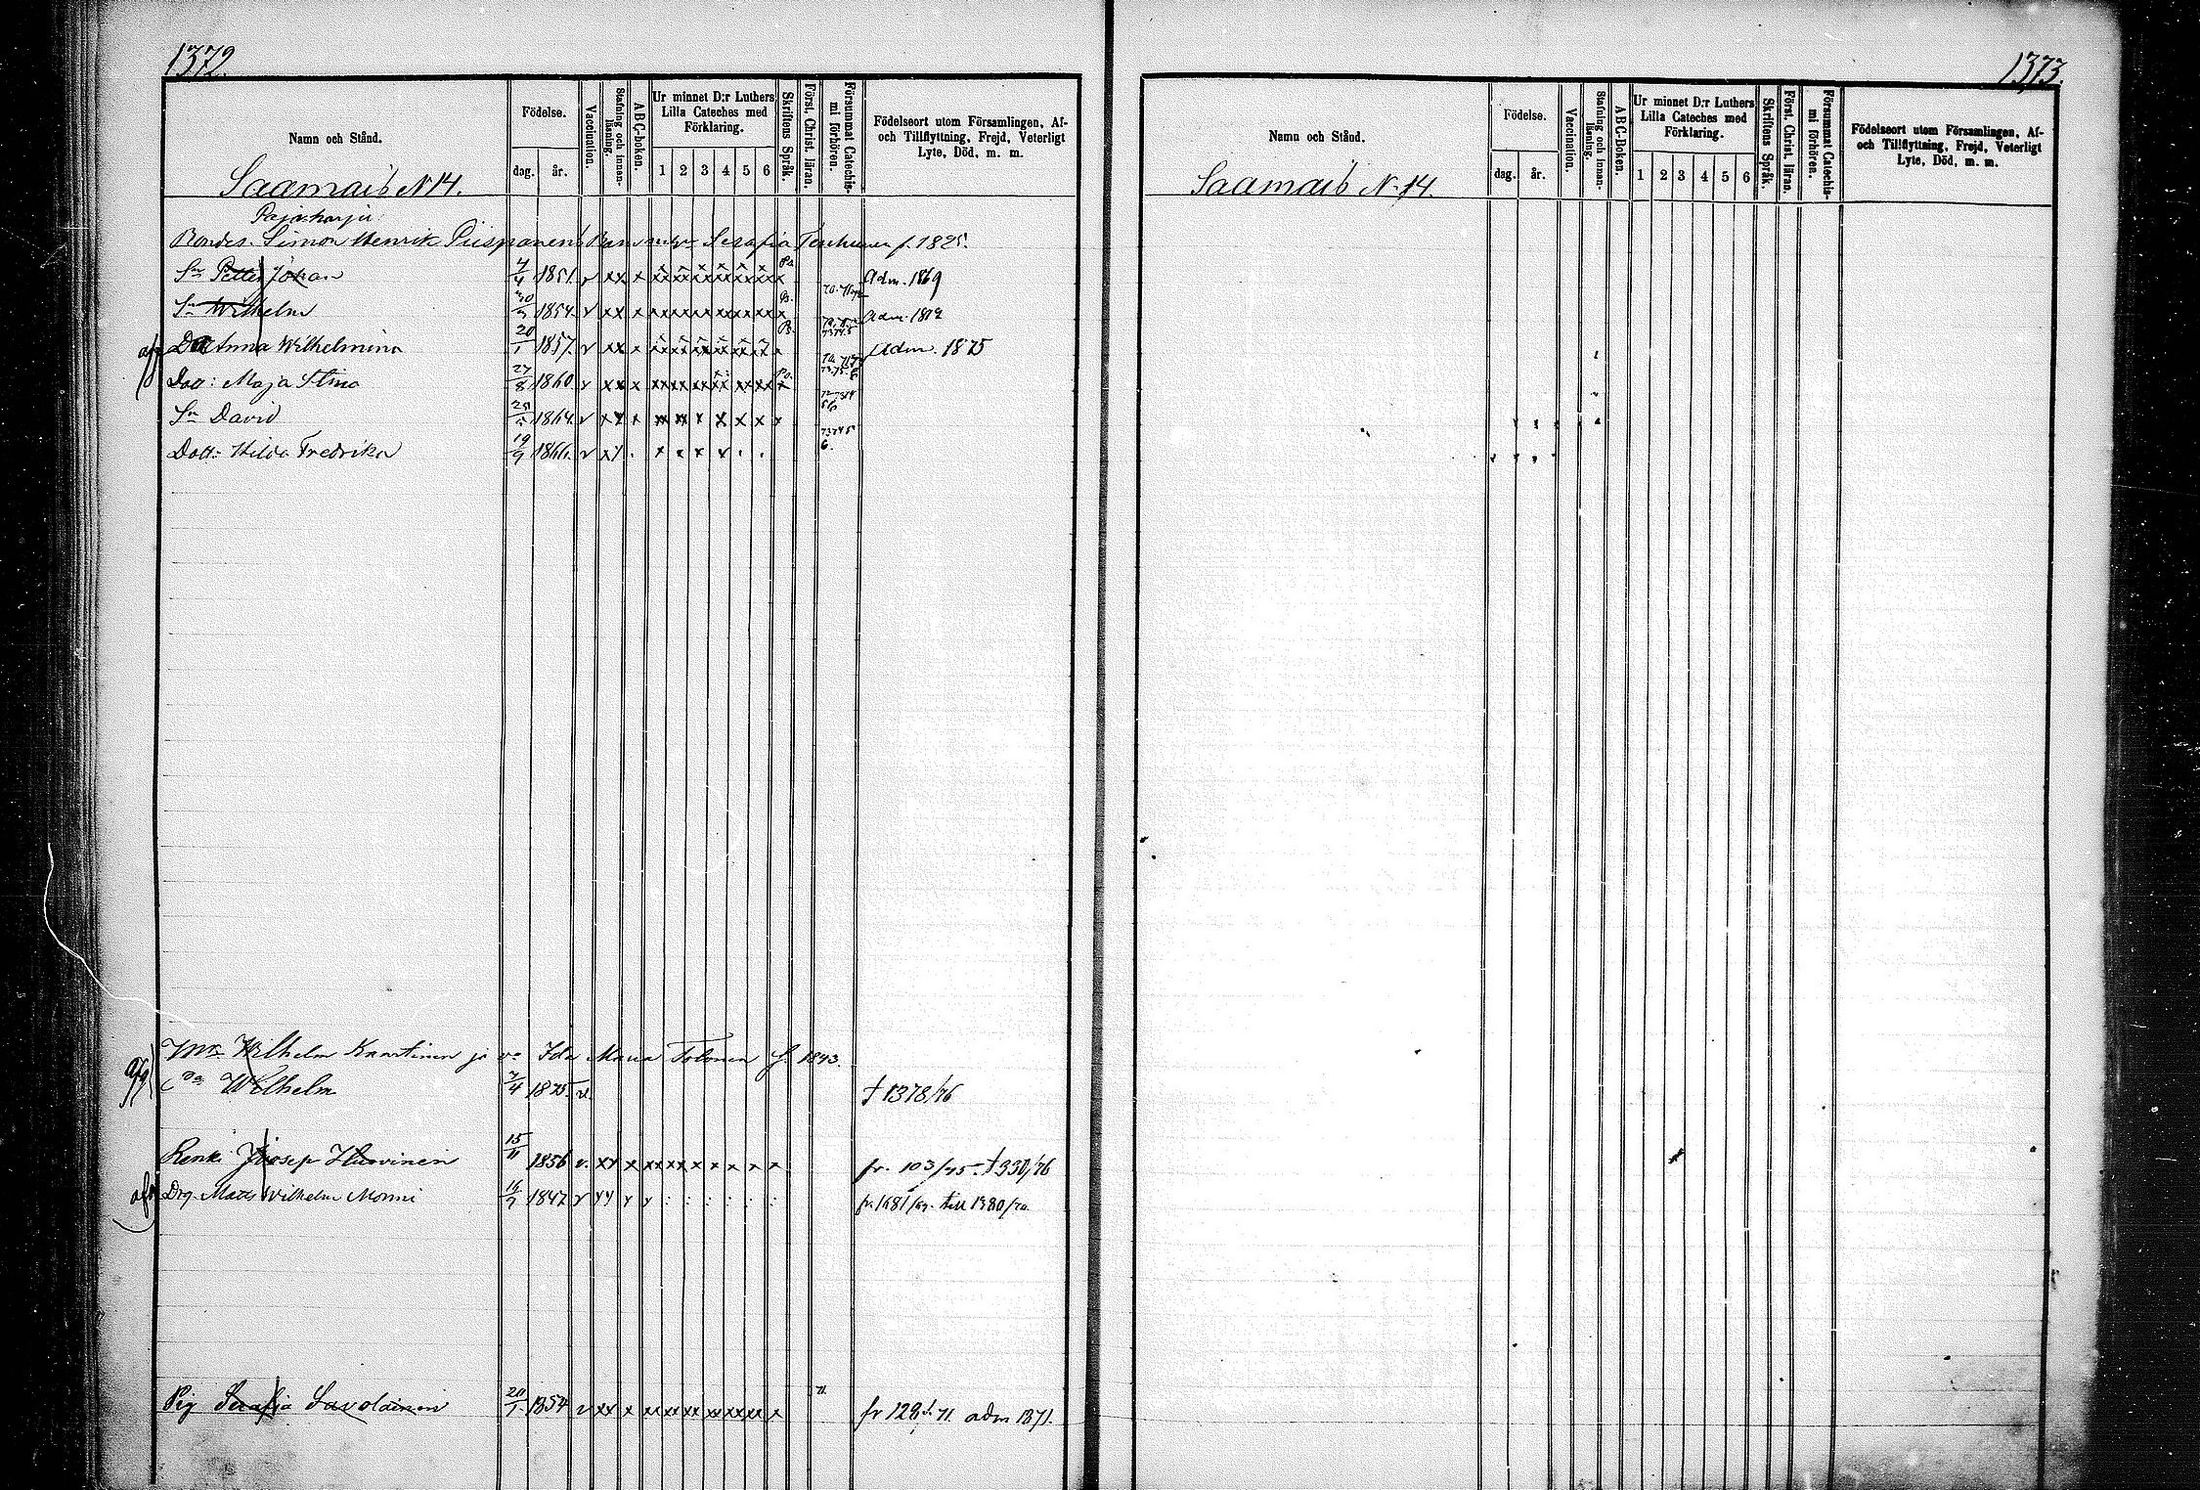 1372.
Namn och Stånd.
Födelse.
dag. år.
Vaccination.
Stafning och innanläsning.
A B C-boken.
Ur minnet D:r Luthers Lilla Cateches med Förklaring.
1 2 3 4 5 6
Skriftens Språk.
Först. Christ. läran.
Försummat Catechismi förhören.
Födelseort utom Församlingen, Af- och Tillflyttning, Frejd, Veterligt Lyte, Död, m. m.
Saamais N 14.
Pajaharju
Bondes. Simon Henrik Piispanens Barn m. Serafia Tenhunen f. 1825.
Sn Petter Johan 7/4 1851. v xx x Adm. 1869
Sn Wilhelm 1854. v xx x Adm. 1872
Anna Wilhelmina 20/1 1857. v xx x Adm. 1875
Dott: Maja Stina 27/8 1860 v xx x
Sn David 1864. v xx x
Dott: Hilda Fredrika 19/9 1866. v xx
Wilhelm Kaartinen ja Ida Maria Tolonen f. 1843.
afg Wilhelm 7/4 1875. v. † 1378/76
Renki Josep Huovinen 15/11 1856 v. xx x fr. 103/75 - † 330/76
afg Drg. Matts Wilhelm Monni 16/9 1847 v fr. 1681/69. till 1380/70
Pig Serafia Savolainen 1854 v xx x fr 128 71. adm 1871.
1373.
Namn och Stånd.
Födelse.
dag. år.
Vaccination.
Stafning och innanläsning.
A B C-Boken.
Ur minnet D:r Luthers Lilla Cateches med Förklaring.
1 2 3 4 5 6
Skriftens Språk.
Först. Christ. läran.
Försummat Catechismi förhören.
Födelseort utom Församlingen, Af- och Tillflyttning, Frejd, Veterligt Lyte, Död, m. m.
Saamais N 14.